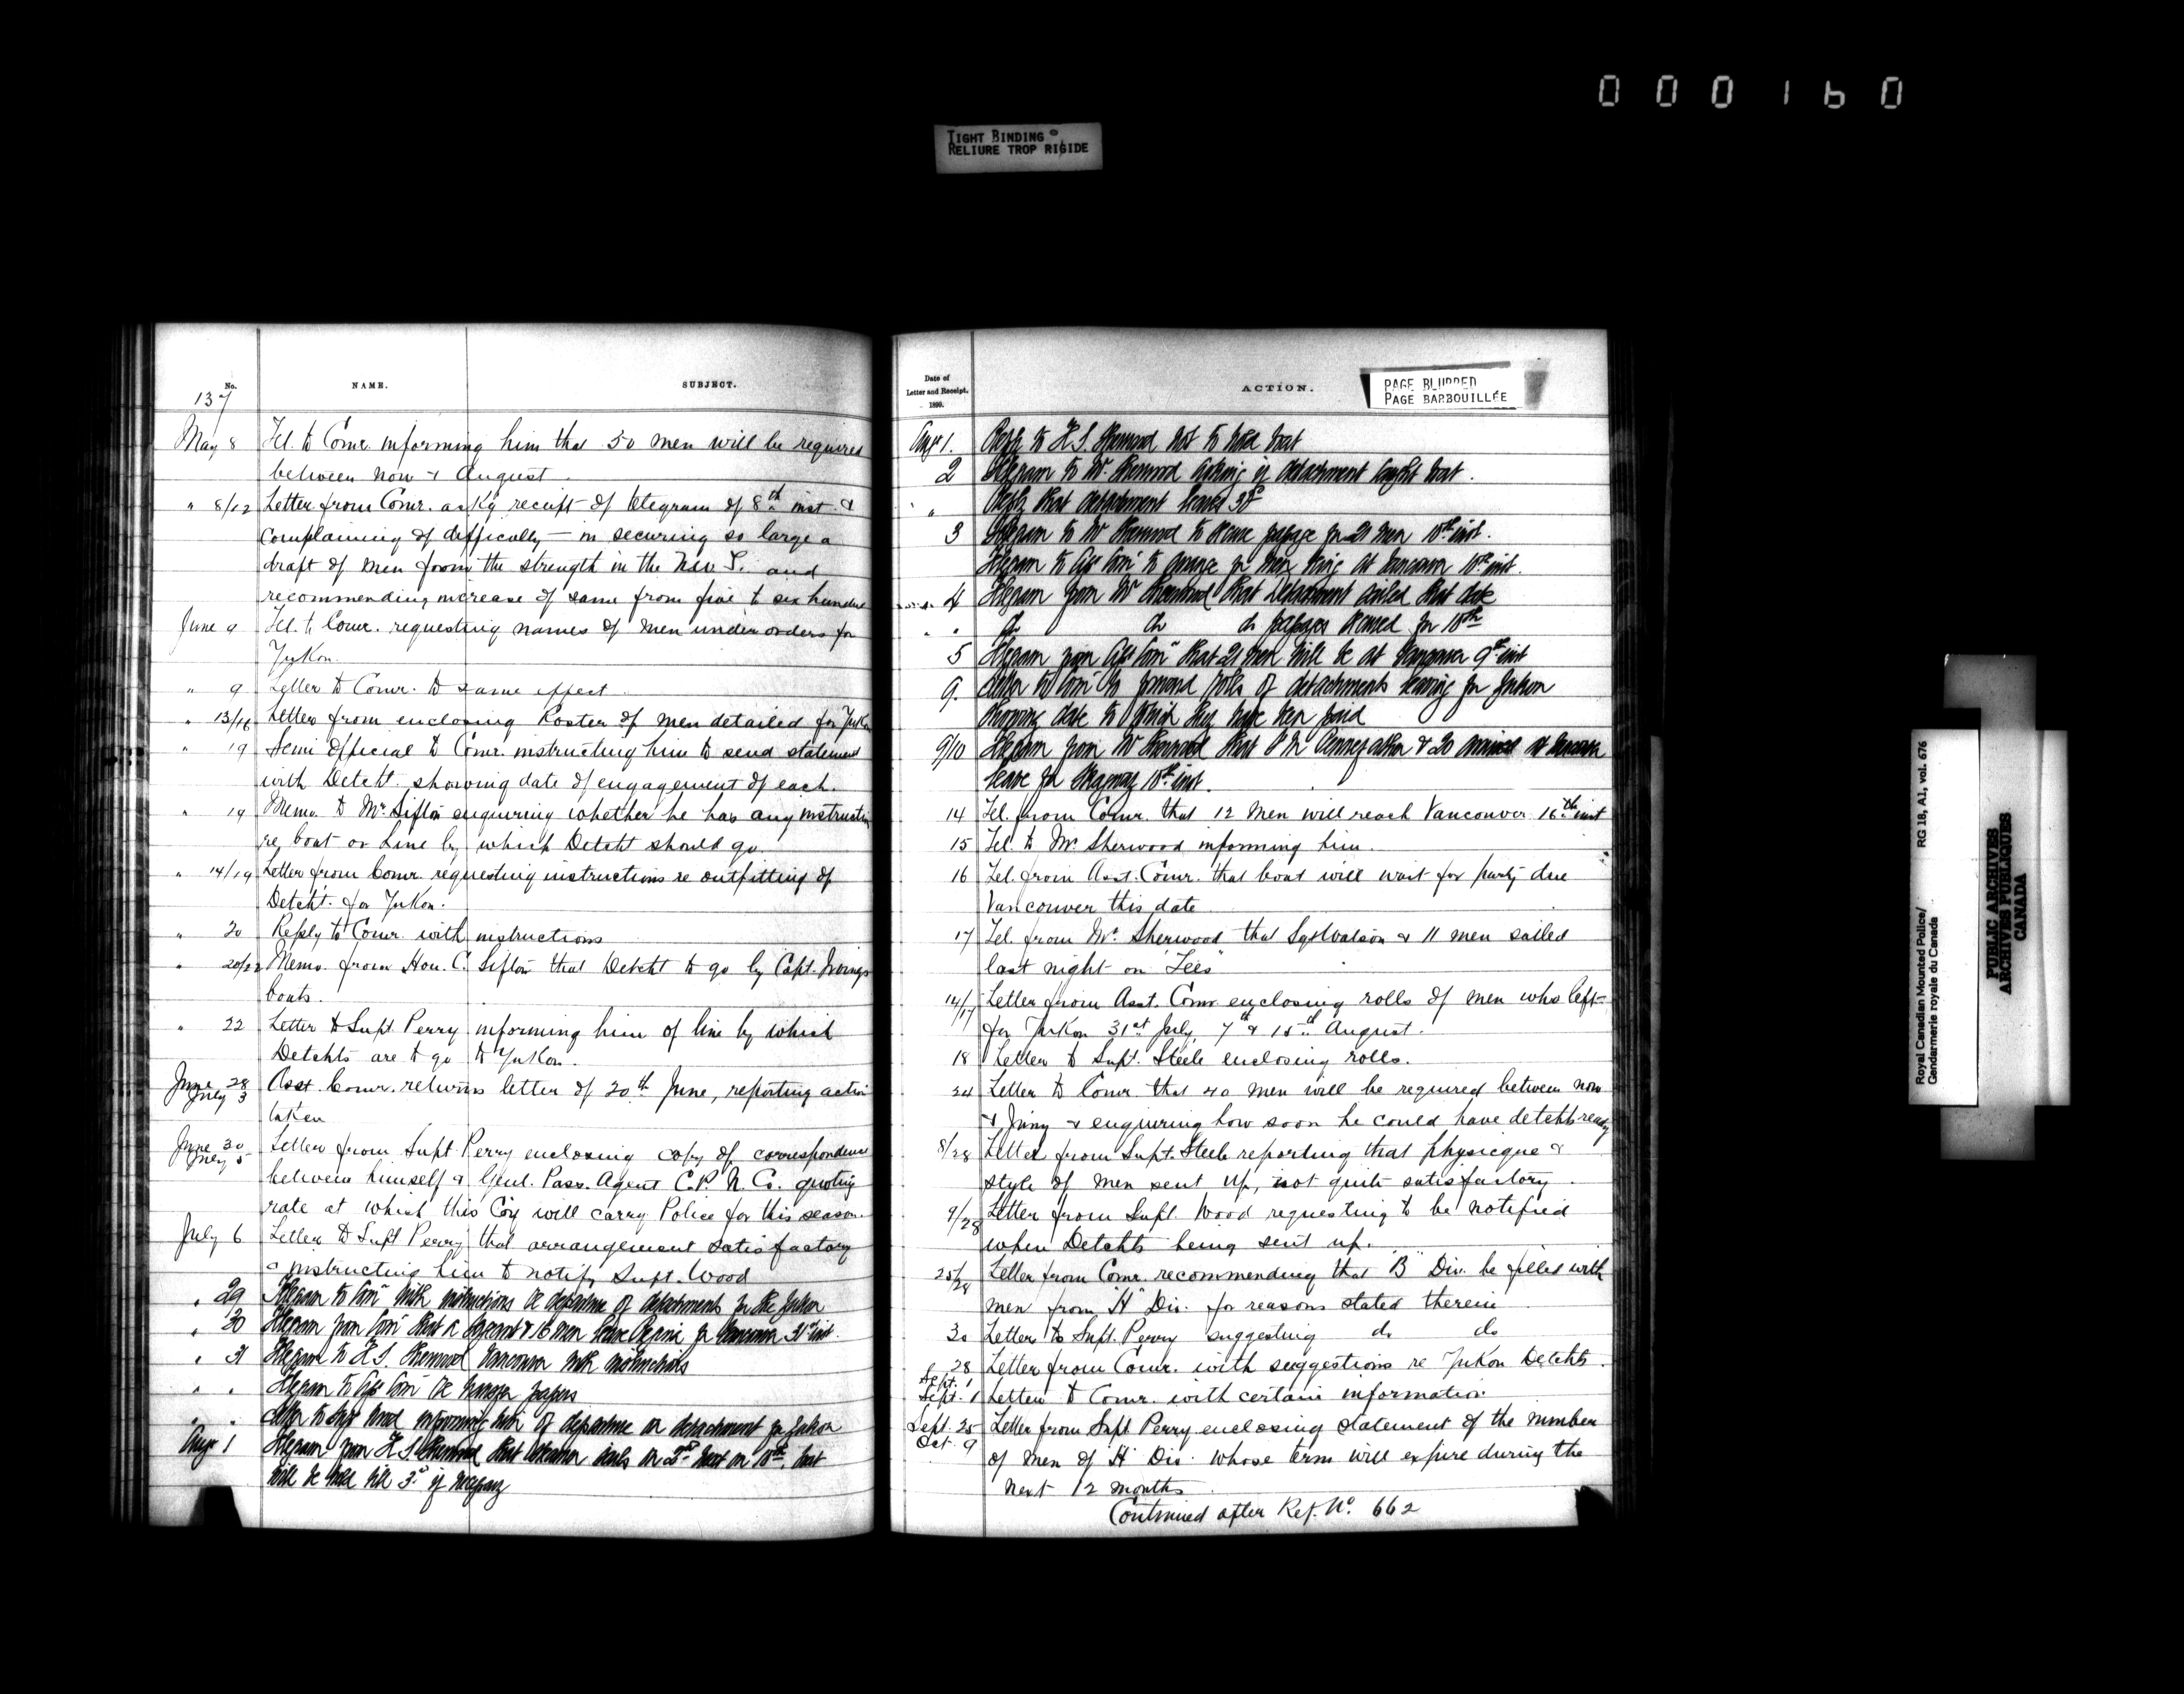 000160
TIGHT BINDING
RELIURE TROP RIGIDE
No. NAME. SUBJECT.
137
May 8 Tel. to Comr. informing him that 50 men will be required
between now & August
" 8/12 Letter from Comr. ack'g receipt of telegram of 8th inst. &
complaining of difficulty in securing so large a
draft of men from the strength in the N.W.T. and
recommending increase of same from five to six hundred
June 9 Tel. to Comr. requesting names of men under orders for
Yukon.
" 9 Letter to Comr. to same effect
" 13/16 Letter from enclosing Roster of men detailed for Yukon
" 19 Semi Official to Comr. instructing him to send statement
with Detcht. showing date of engagement of each.
" 19 Memo. to Mr. Sifton enquiring whether he has any instructions
re boat or Line by which Detcht should go
" 14/19 Letter from Comr. requesting instructions re outfitting of
Detcht. for Yukon.
" 20 Reply to Comr. with instructions
" 20/22 Memo. from Hon. C. Sifton that Detcht to go by Capt. Irvings
boats.
" 22 Letter to Supt. Perry informing him of line by which
Detchts are to go to Yukon.
June 28
July 3 Asst. Comr. returns letter of 20th June, reporting action
taken
June 30
July 5 Letter from Supt. Perry enclosing copy of correspondence
between himself & Genl. Pass. Agent C.P.N. Co. quoting
rate at which this Coy will carry Police for this season.
July 6 Letter to Supt Perry that arrangement satisfactory
& instructing him to notify Supt. Wood
" 29 Telegram to Comr with instructions re departure of detachments for the Yukon
" 30 Telegram from Comr that a Sergeant & 16 men leave Regina for Vancouver 31st inst.
" 31 Telegram to H.S. Sherwood Vancouver with instructions
" " Telegram to Asst Comr re transfer papers
" " Letter to Supt Wood informing him of departure of detachment for Yukon
Augt 1 Telegram from H.S. Sherwood that steamer sails on 2nd next on 10th, boat
will be held till 3rd if necessary
Date of
Letter and Receipt.
1899.
ACTION.
PAGE BLURRED
PAGE BARBOUILLÉE
Augt 1. Reply to H.S. Sherwood not to hold boat
2 Telegram to Mr. Sherwood asking if detachment caught boat.
" Reply that detachment leaves 3rd
3 Telegram to Mr Sherwood to secure passage for 21 men 10th inst.
Telegram to Asst Comr to arrange for men being at Vancouver 10th inst.
4 Telegram from Mr Sherwood that Detachment sailed that date
" " do do do passages secured for 10th
5 Telegram from Asst Comr that 21 men will be at Vancouver 9th inst
9. Letter to Comr to forward rolls of detachments leaving for Yukon
showing date to which they have been paid
9/10 Telegram from Mr Sherwood that & 20 arrived at Vancouver
leave for Skagway 10th inst.
14 Tel. from Comr. that 12 men will reach Vancouver 16th inst
15 Tel. to Mr. Sherwood informing him.
16 Tel. from Asst. Comr. that boat will wait for party due
Vancouver this date
17 Tel. from Mr. Sherwood that Sgt Watson & 11 men sailed
last night on "Tees"
14/17 Letter from Asst. Comr enclosing rolls of men who left
for Yukon 31st July, 7th & 15th August.
18 Letter to Supt. Steele enclosing rolls.
24 Letter to Comr. that 40 men will be required between now
& Jany & enquiring how soon he could have detchts ready
8/28 Letter from Supt. Steele reporting that physicque &
style of men sent up, not quite satisfactory.
9/28 Letter from Supt. Wood requesting to be notified
when Detchts being sent up.
25/28 Letter from Comr. recommending that "B" Div. be filled with
men from "H" Div. for reasons stated therein
30 Letter to Supt. Perry suggesting do do
28
Sept. 1 Letter from Comr. with suggestions re Yukon Detchts.
Sept. 1 Letter to Comr. with certain information
Sept. 25
Oct. 9 Letter from Supt Perry enclosing statement of the number
of men of "H" Div. whose term will expire during the
next 12 months
Continued after Ref. No. 662
Royal Canadian Mounted Police/
Gendarmerie royale du Canada
RG 18, A1, vol. 676
PUBLIC ARCHIVES
ARCHIVES PUBLIQUES
CANADA